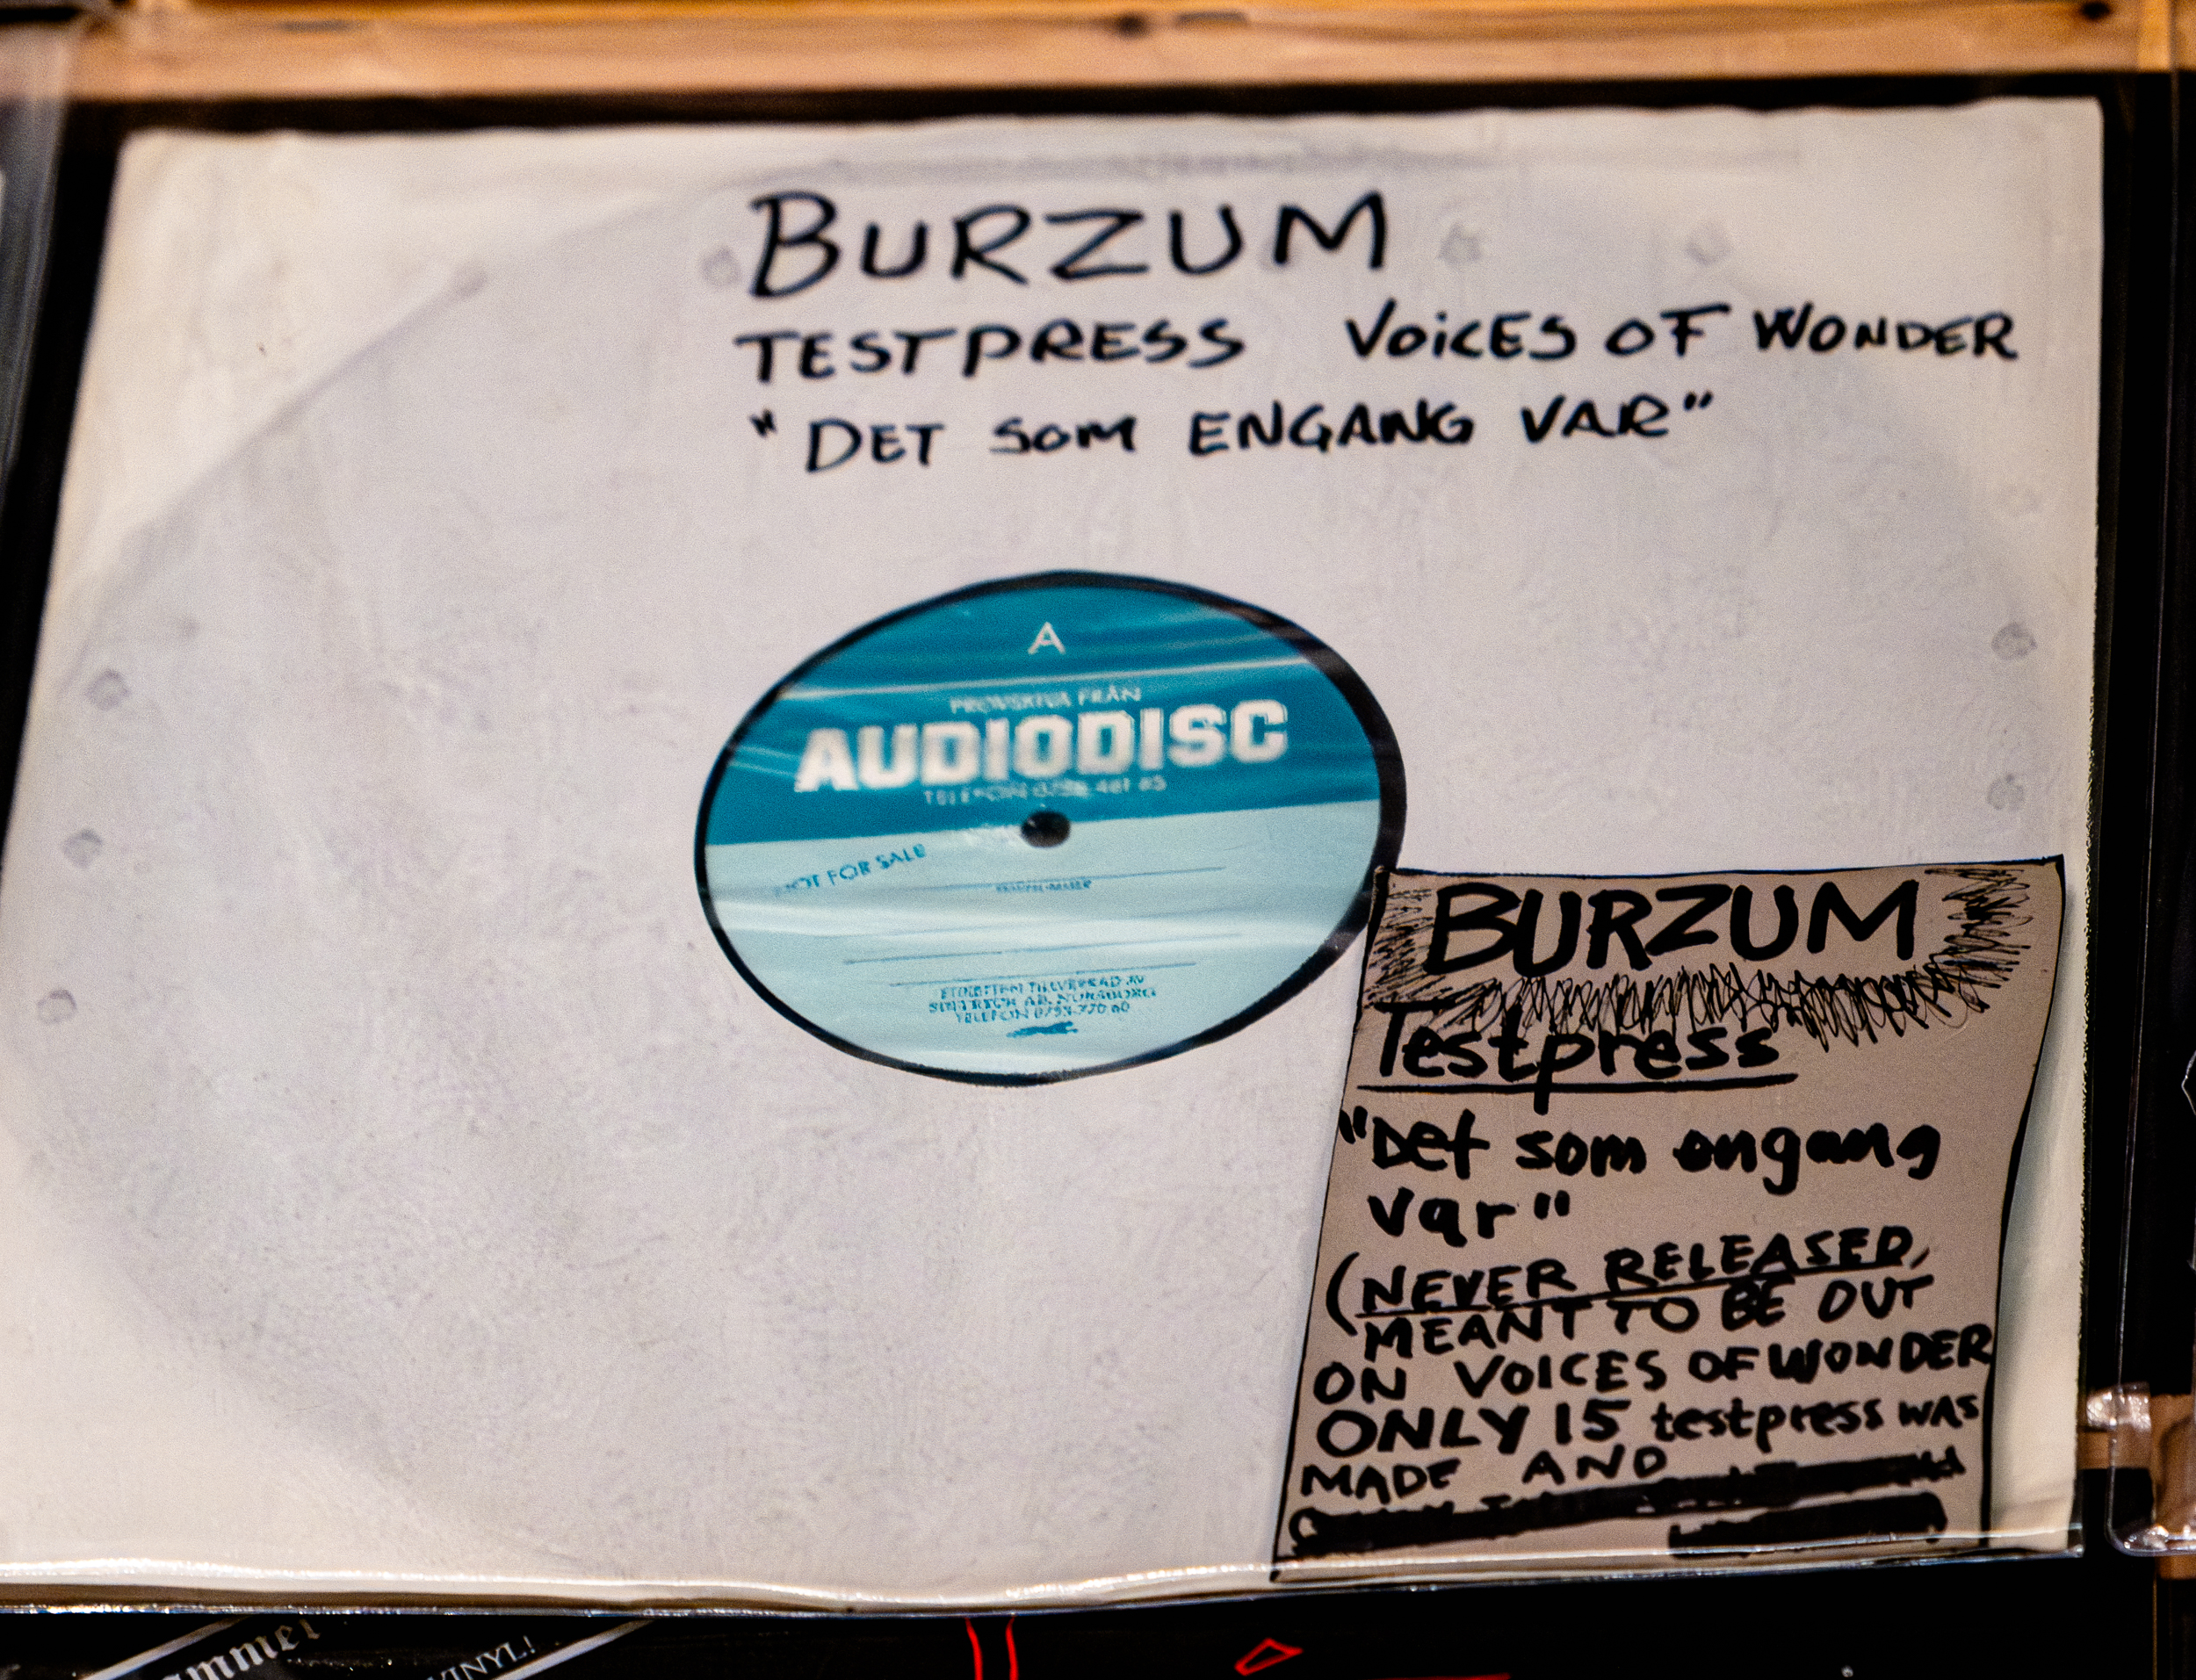 BURZUM
TESTPRESS VOICES OF WONDER
"DET SOM ENGANG VAR"
A
PROVSKIVA FRÅN
AUDIODISC
TELEFON
NOT FOR SALE
ETIKETTEN TILLVERKAD AV
TELEFON
BURZUM
Testpress
"Det som engang
var"
(NEVER RELEASED,
MEANT TO BE OUT
ON VOICES OF WONDER
ONLY 15 testpress was
MADE AND
VINYL!